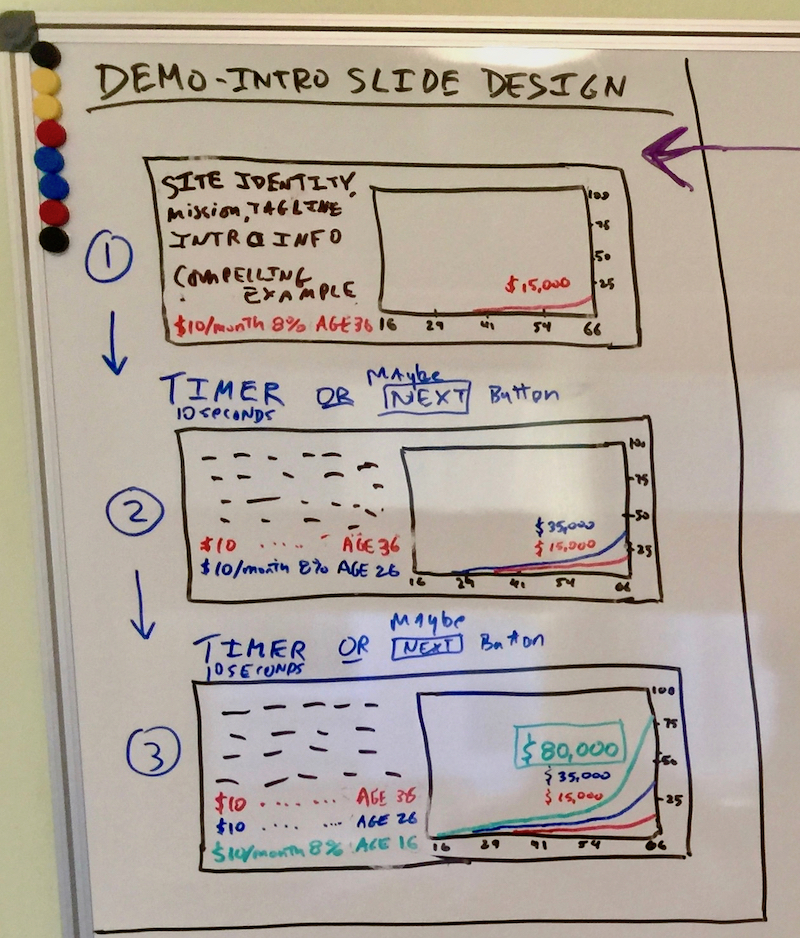 DEMO-INTRO SLIDE DESIGN
1
SITE IDENTITY,
Mission, TAGLINE
INTRO INFO
COMPELLING
EXAMPLE
$10/month 8% AGE 36
100
75
50
25
$15,000
16 29 41 54 66
TIMER OR MAybe NEXT Button
10 SECONDS
2
$10 ..... AGE 36
$10/month 8% AGE 26
100
75
50
25
$35,000
$15,000
16 29 41 54 66
TIMER OR MAybe NEXT Button
10 SECONDS
3
$10 ....... AGE 36
$10 .... ... AGE 26
$10/month 8% AGE 16
100
75
50
25
$80,000
$35,000
$15,000
16 29 41 54 66